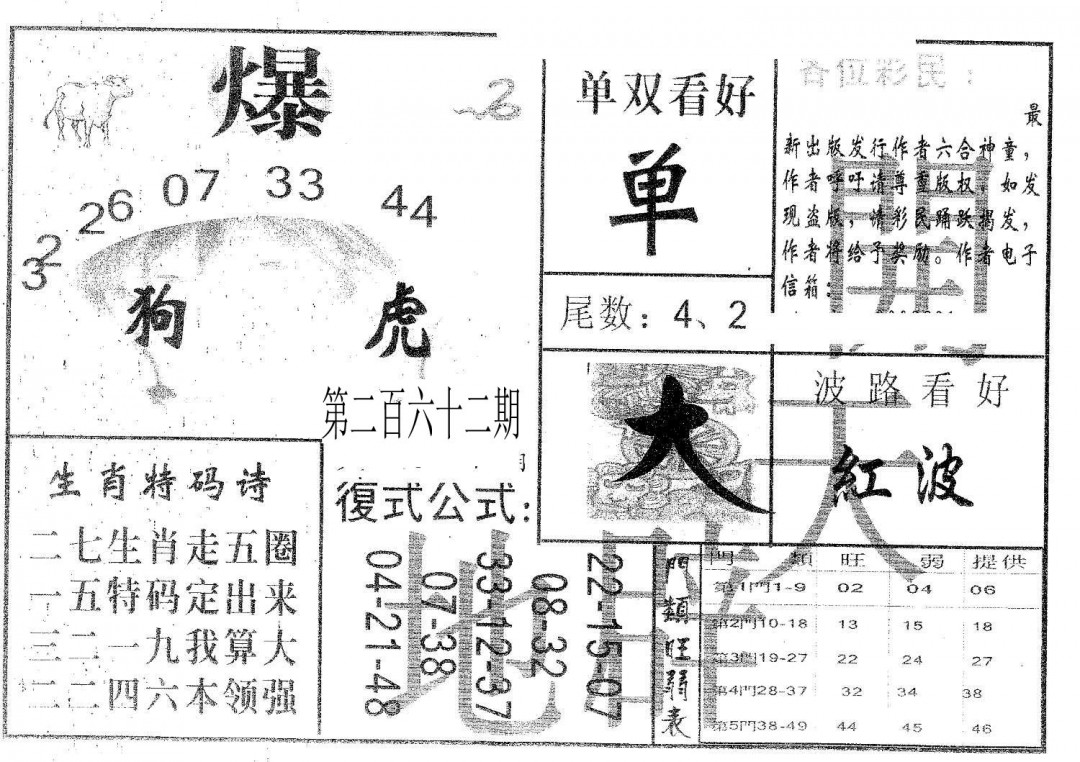 爆
2
32
26
07
33
44
狗
虎
第二百六十二期
单双看好
单
尾数：4、2
各位彩民：
最
新出版发行作者六合神童，
作者呼吁请尊重版权，如发
现盗版，情彩民踊跃揭发，
作者将给予奖励。作者电子
信箱：
大
波路看好
紅波
生肖特码诗
二七生肖走五圈
一五特码定出来
三二一九我算大
二二四六本领强
復式公式：
22-15-07
08-32
33-12-37
07-38
04-21-48
門類旺弱表
門類 旺 弱 提供
第1門1-9 02 04 06
第2門10-18 13 15 18
第3門19-27 22 24 27
第4門28-37 32 34 38
第5門38-49 44 45 46